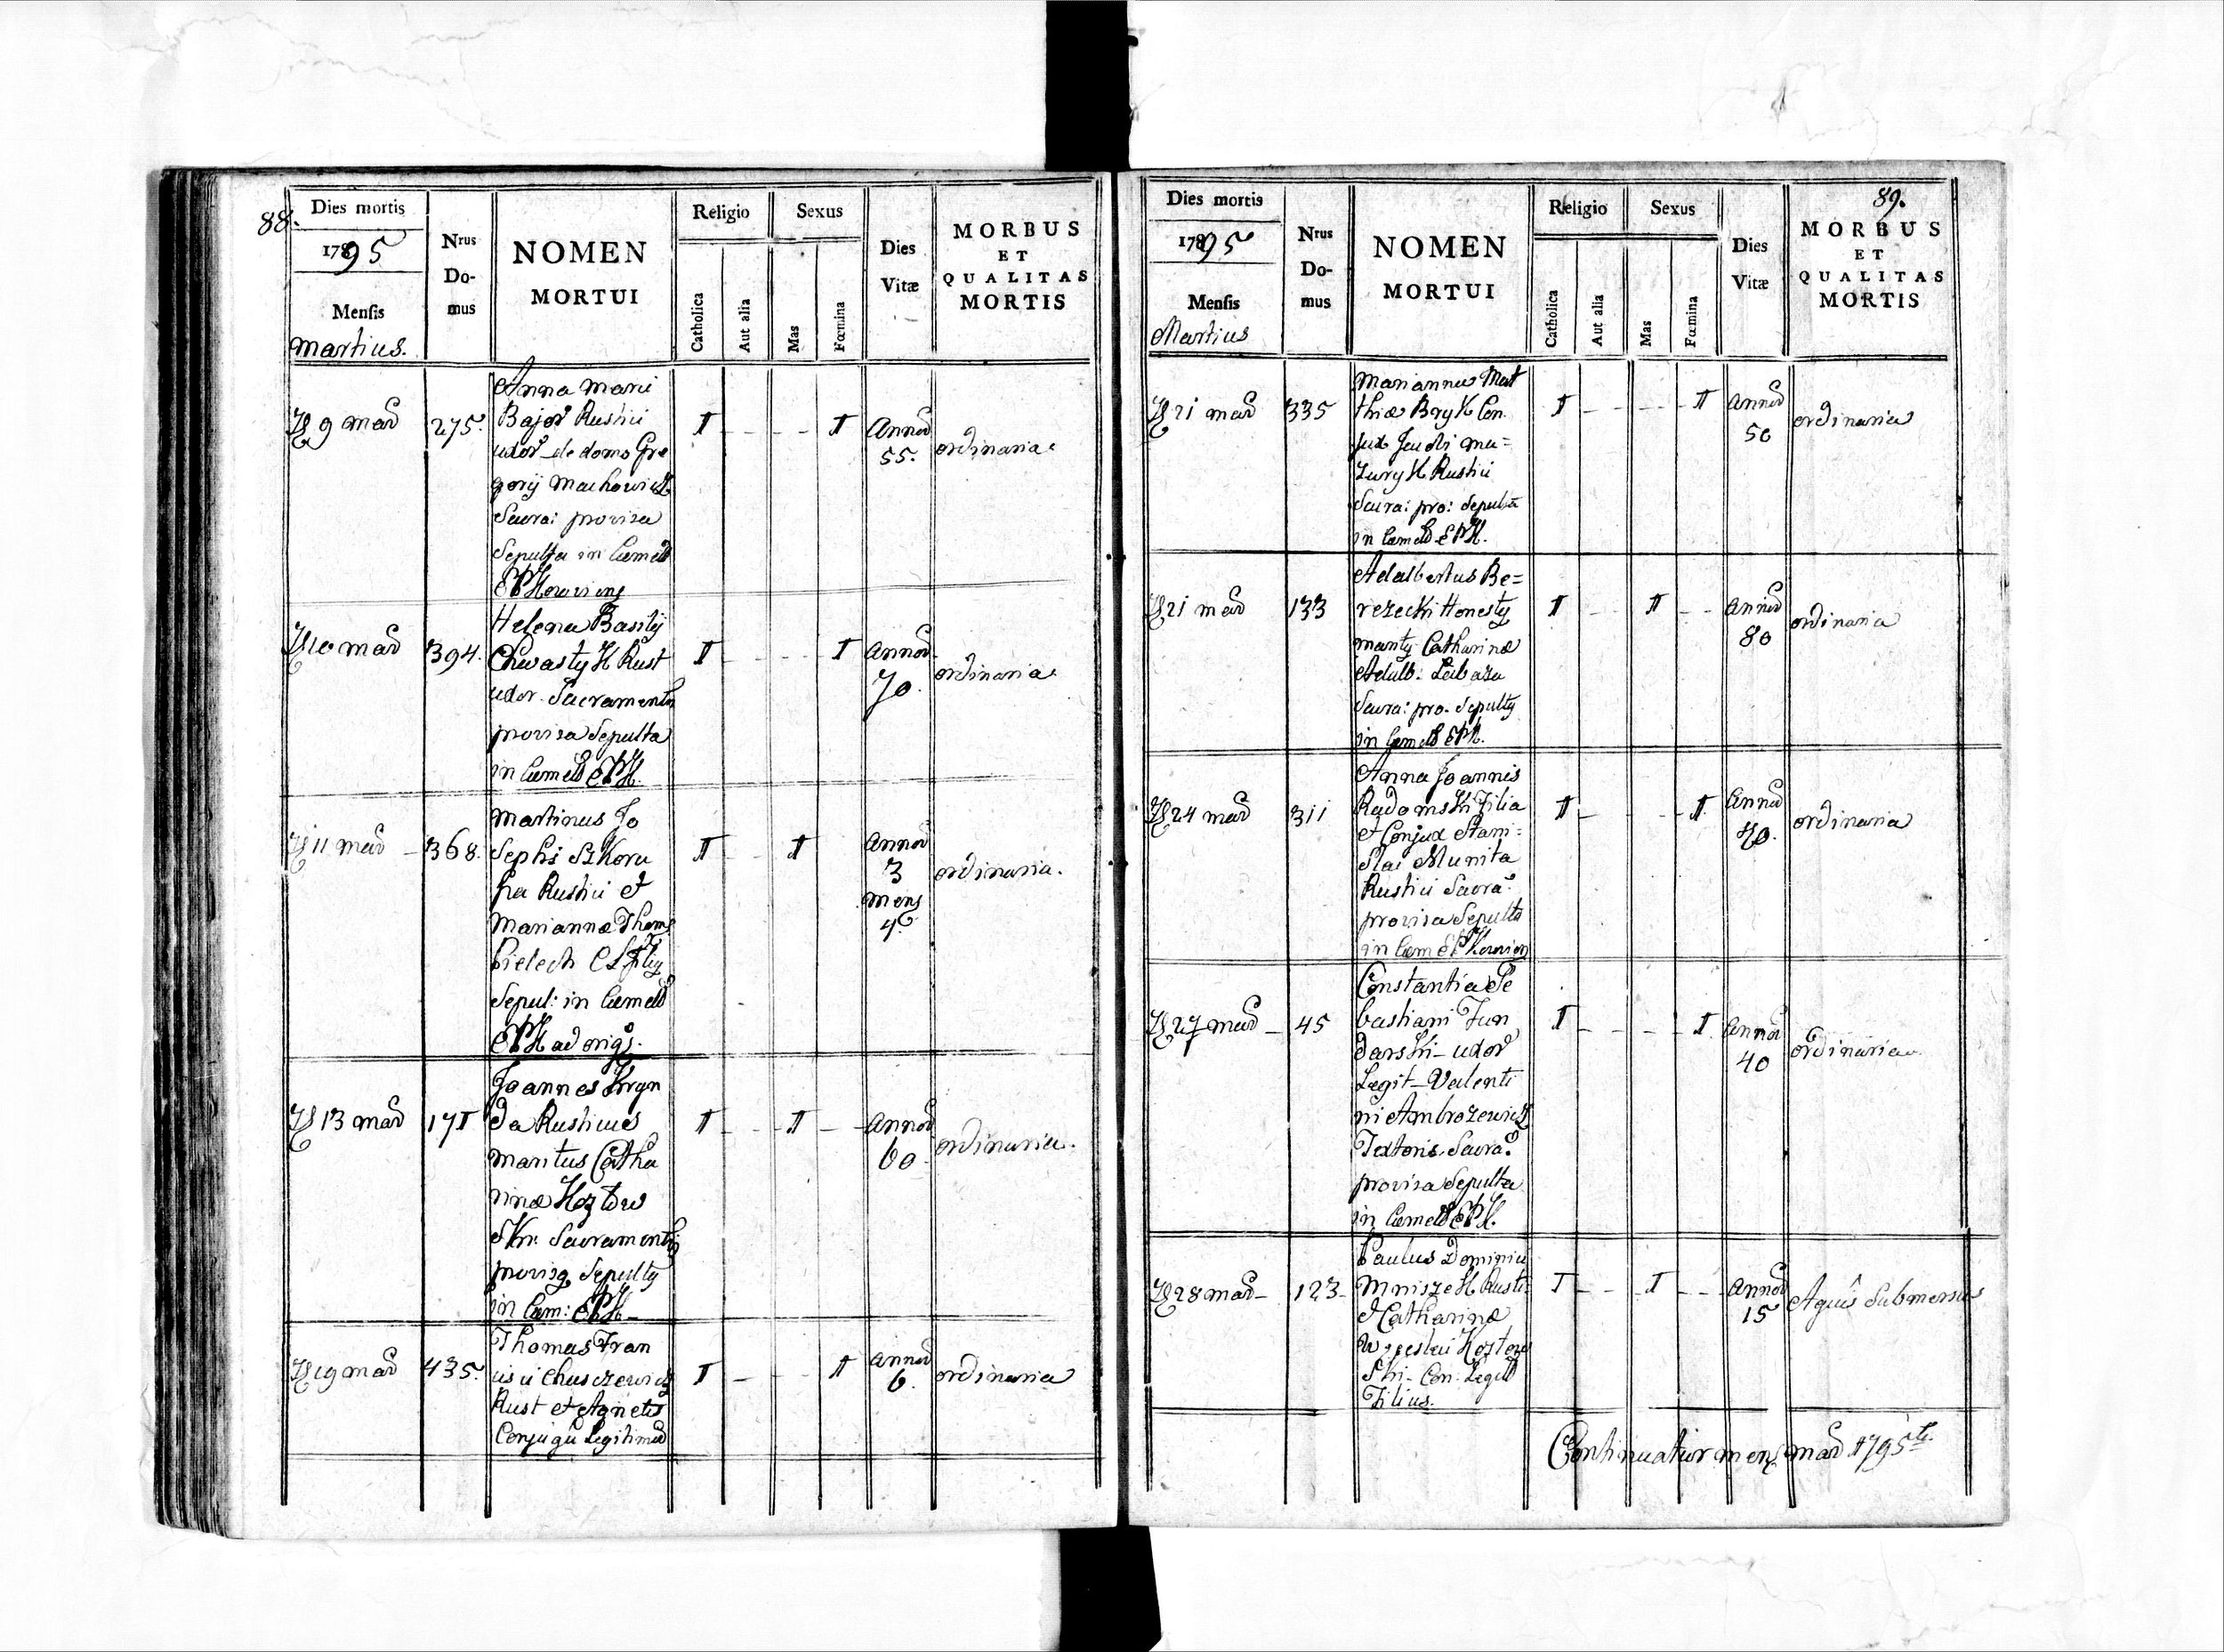 88.
Dies mortis
1795
Mensis
Martius.
Nrus
Do-
mus
NOMEN
MORTUI
Religio
Catholica
Aut alia
Sexus
Mas
Fœmina
Dies
Vitæ
MORBUS
ET
QUALITAS
MORTIS
9 mar
275.
Anna Marci
Bajor Rustici
uxor de domo Gre
gorij Machowicz
Sacra: provisa
Sepulta in Cæmet
EPK
I
I
Annor
55.
ordinaria.
10 mar
394.
Helena Basilij
Chwastyk Rust
uxor Sacramentis
provisa Sepulta
in Cæmet EPK.
I
I
Annor
70.
ordinaria.
11 mar
368.
Martinus Jo
sephi Szkoru
pa Rustici et
Mariannæ Thom
Bielech CL filiq
Sepul: in Cæmet
EPK ad
I
I
Annor
3
mens
4.
ordinaria.
13 mar
171
Joannes Kryn
da Rusticus
maritus Catha
rinæ Kozłow
Ski Sacramentis
provisq Sepultq
in Cæm: EPK
I
I
Annor
60.
ordinaria.
19 mar
435.
Thomas Fran
cisci Chusczewicz
Rust et Agnetis
Conjugu Legitimor
I
I
Annor
6.
ordinaria
89.
Dies mortis
1795
Mensis
Martius
Nrus
Do-
mus
NOMEN
MORTUI
Religio
Catholica
Aut alia
Sexus
Mas
Fœmina
Dies
Vitæ
MORBUS
ET
QUALITAS
MORTIS
21 mar
335
Marianna Mat
thiæ Bryk Con
jux Jacobi Ma=
zuryk Rustici
Sacra: pro: Sepulta
in Cæmet EPK.
I
I
Annor
50
ordinaria
21 mar
133
Adalbertus Be=
rezecki Honestq
maritq Catharinæ
Adalb:
Sacra: pro. Sepultq
in Cæmet EPK.
I
I
Annor
80
ordinaria
24 mar
311
Anna Joannis
Radomski Filia
et Conjux Stani=
slai Munita
Rustici Sacra:
provisa Sepulta
in Cæm EPK
I
I
Annor
70.
ordinaria
27 mar
45
Constantia Se
bastiani Jun
darski uxor
Legit Valenti
ni Ambrozewicz
Textoris Sacra.
provisa Sepulta
in Cæmet EPK.
I
I
Annor
40
ordinaria
28 mar
123
Paulus Dominici
Mniszek Rusti
et Catharinæ
Kozłow
Ski Con: Legit
Filius.
I
I
Annor
15
Aquis Submersus
Continuatur mens mar 1795